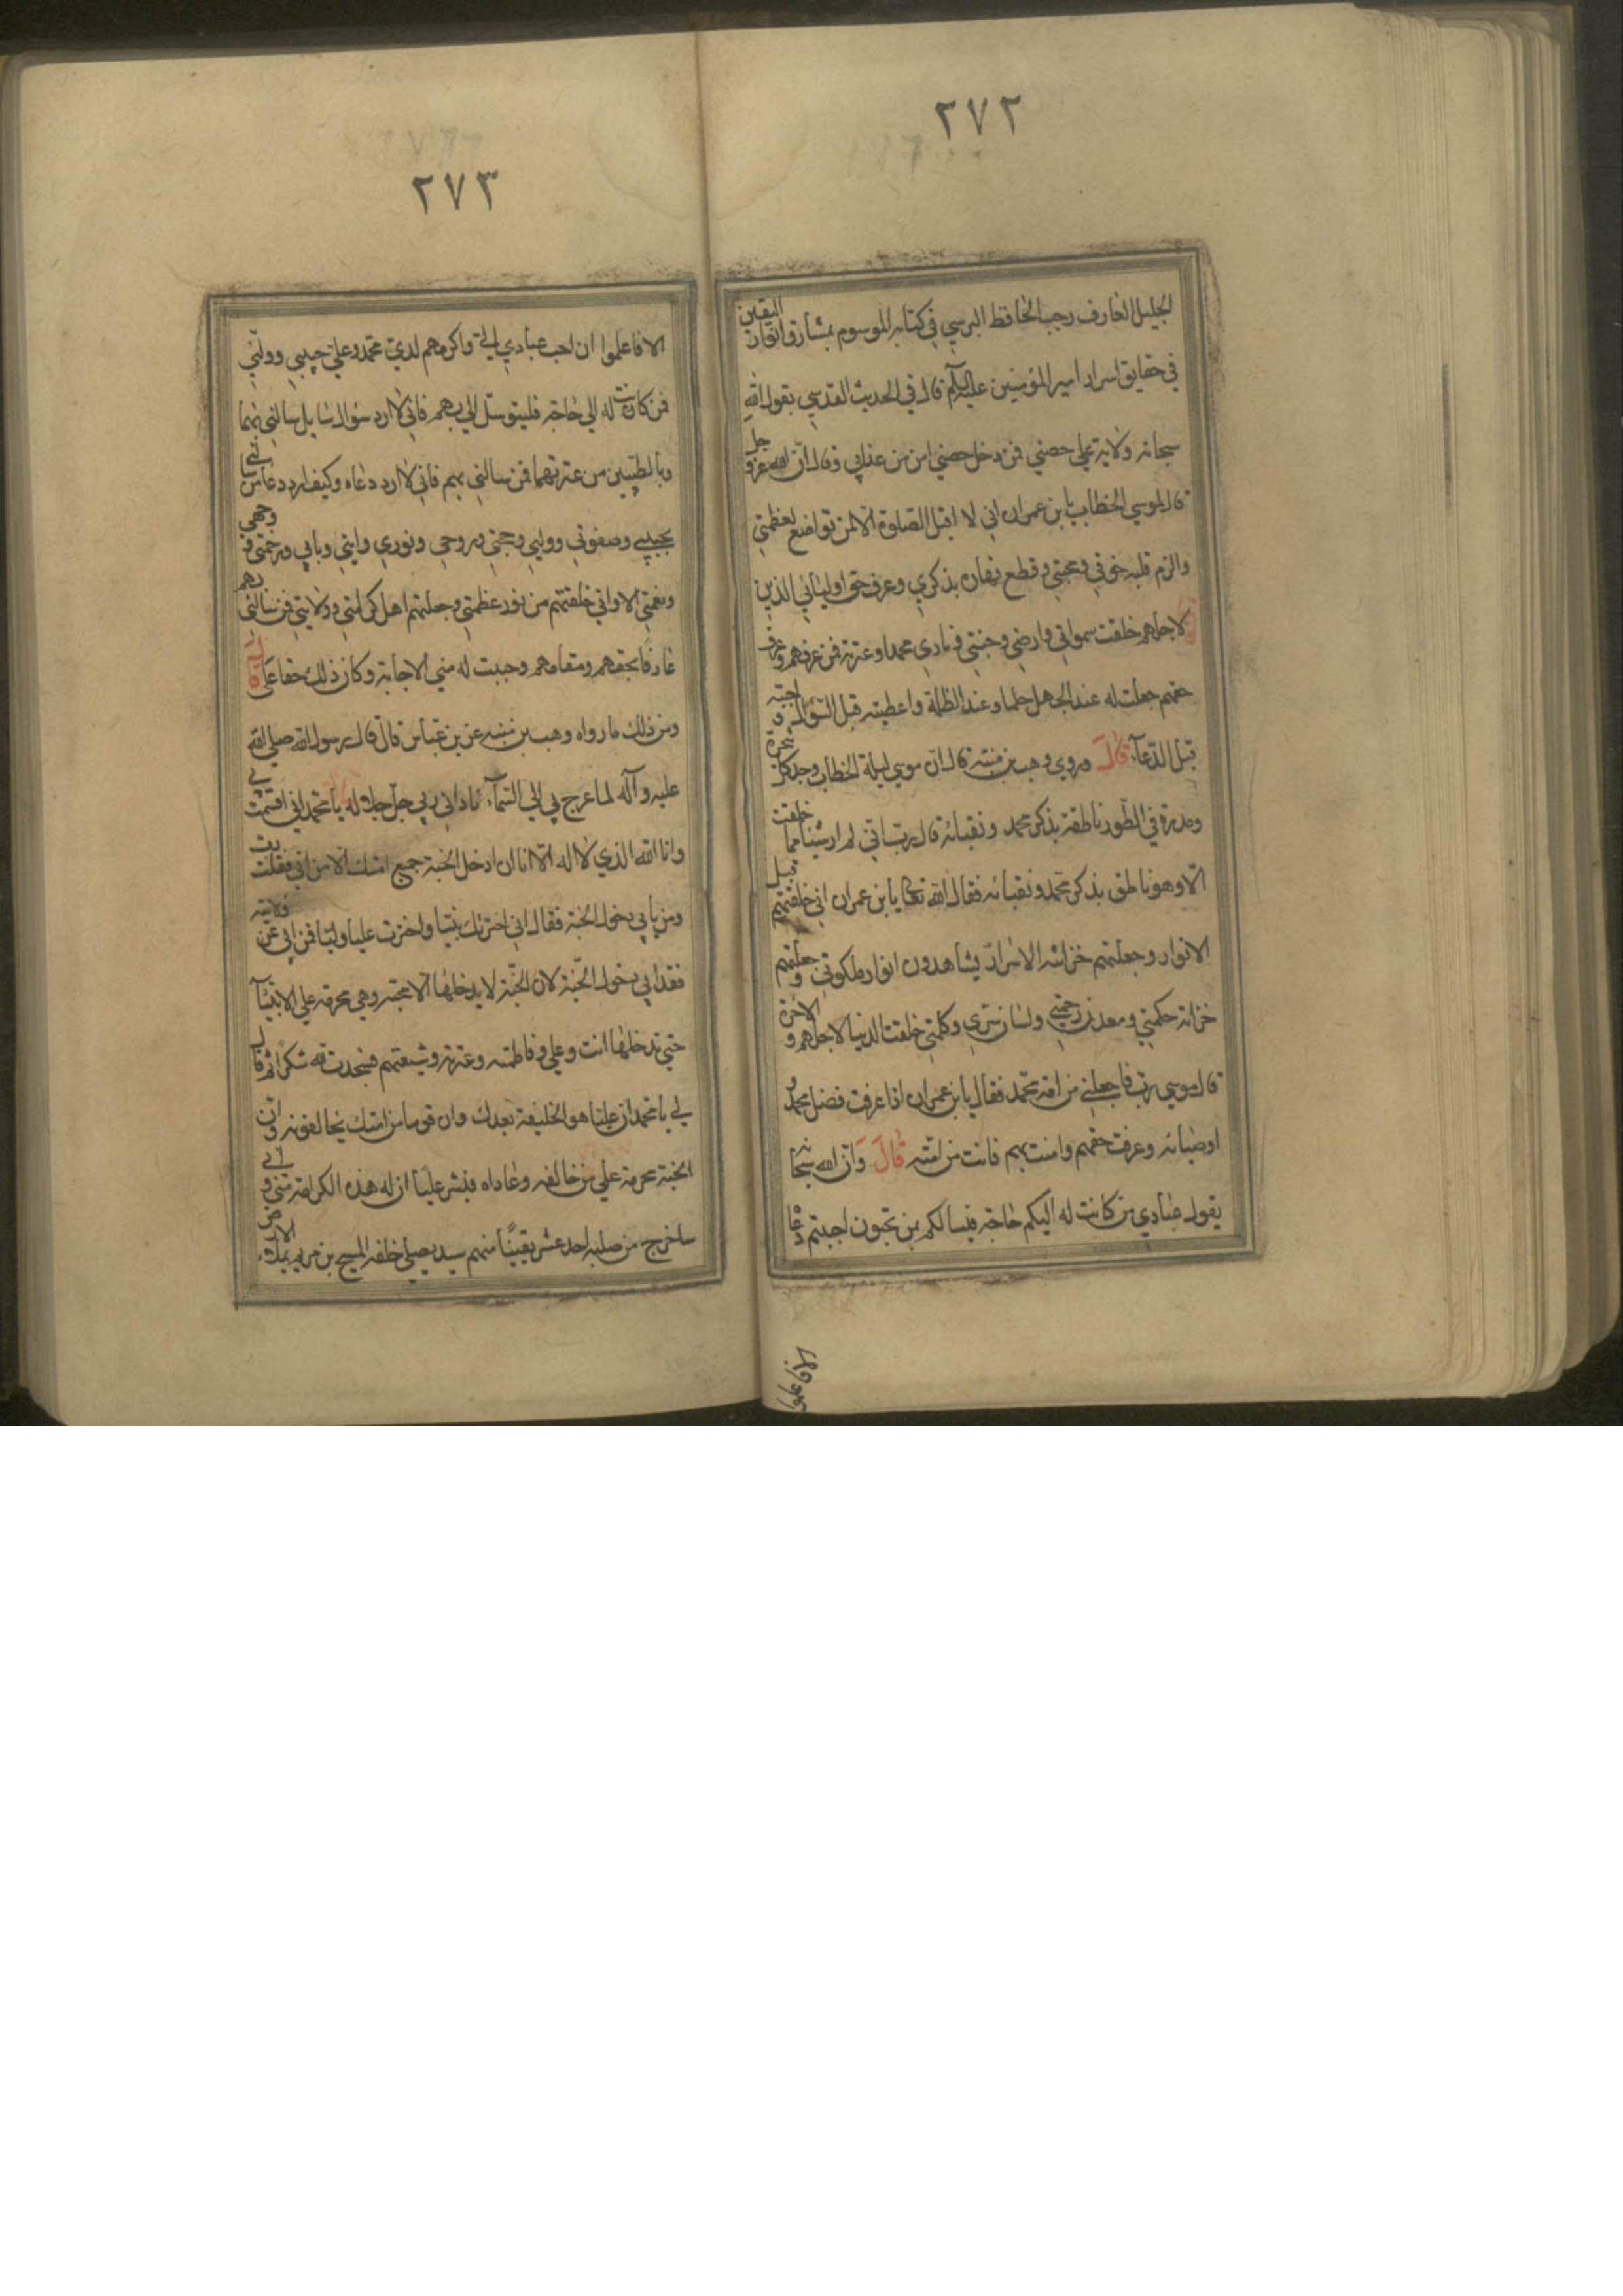 ٢٧٢
الجليل العارف رجب الحافظ البرسي في كتابه الموسوم بمشارق انوار اليقين
في حقايق اسرار امير المؤمنين عليه السلم قال في الحديث القدسي يقول الله
سبحانه ولاية علي حصني فمن دخل حصني امن من عذابي وقال ان الله عز و جل
قال لموسي الخطاب يا بن عمران اني لا اقبل الصلوة الا لمن تواضع لعظمتي
والزم قلبه خوفي ومحبتي وقطع نهاره بذكري وعرف حق اوليائي الذين
لاجلهم خلقت سمواتي وارضي وجنتي وناري محمدا وعترته فمن عرفهم وعرف
حقهم جعلت له عند الجهل حلما وعند الظلمة واعطيته قبل السؤال و اجبته
قبل الدعآء قال وروي وهب بن منبه قال ان موسي ليلة الخطاب وجد كل شجرة
ومدرة في الطور ناطقة بذكر محمد ونقبائه قال رب اني لم ار شيئا مما خلقت
الا وهو ناطق بذكر محمد ونقبائه فقال الله تعالى يا بن عمران اني خلقتهم قبل
الانوار وجعلتهم خزانه الاسرار يشاهدون انوار ملكوتي و جعلتهم
خزانه حكمتي ومعدن رحمتي ولسان سري وكلمتي خلقت الدنيا لاجلهم و الاخرة
قال موسي رب فاجعلني من امة محمد فقال يا بن عمران اذا عرفت فضل محمد و
اوصيائه وعرفت حقهم وامنت بهم فانت من امته قال وان الله سبحانه
يقول عبادي من كانت له اليكم حاجة فيسالكم بمن تحبون اجبتم دعا
الا فاعلموا
٢٧٣
الا فاعلموا ان احب عبادي الي واكرمهم لدي محمد وعلي حبيبي ووليي
فمن كانت له الي حاجة فليتوسل الي بهم فاني لا ارد سؤال سايل سالني بهما
وبالطيبين من عترتهما فمن سالني بهم فاني لا ارد دعاه وكيف ارد دعا من سالني
بحبيبي وصفوتي ووليي وحجتي وروحي ونوري وايتي وبابي ورحمتي و وجهي
ونعمتي الا واني خلقتهم من نور عظمتي وجعلتهم اهل كرامتي وولايتي فمن سالني بهم
عارفا بحقهم ومقامهم وجبت له مني الاجابة وكان ذلك حقا علي قال
ومن ذلك ما رواه وهب بن منبه عن بن عباس قال قال رسول الله صلي الله
عليه وآله لما عرج بي الي السمآء ناداني ربي جل جلاله يا محمد اني اقسمت بي
وانا الله الذي لا اله الا انا ان ادخل الجنة جميع امتك الا من ابي فقلت رب
ومن يابي دخول الجنة فقال اني اخترتك نبيا واخترت عليا وليا فمن ابي عن ولايته
فقد ابي دخول الجنة لان الجنة لا يدخلها الا محبه وهي محرمة علي الانبيآء
حتي تدخلها انت وعلي وفاطمه وعترته وشيعتهم فسجدت لله شكرا ثم قال
لي يا محمد ان عليا هو الخليفة بعدك وان قوما من امتك يخالفونه وان
الجنة محرمة علي من خالفه وعاداه فبشر عليا ان له هذه الكرامة مني و اني
ساخرج من صلبه احد عشر نقيبًا منهم سيد يصلي خلفه المسيح بن مريم يملاء الارض